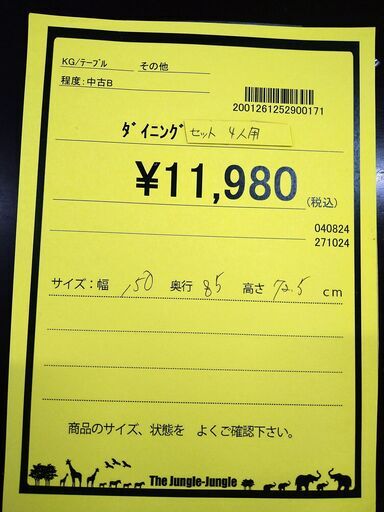 KG/テーブル その他
程度:中古B
2001261252900171
ﾀﾞｲﾆﾝｸﾞ セット 4人用
¥11,980 (税込)
040824
271024
サイズ:幅 150 奥行 85 高さ 72.5 cm
商品のサイズ、状態を よくご確認下さい。
The Jungle-Jungle